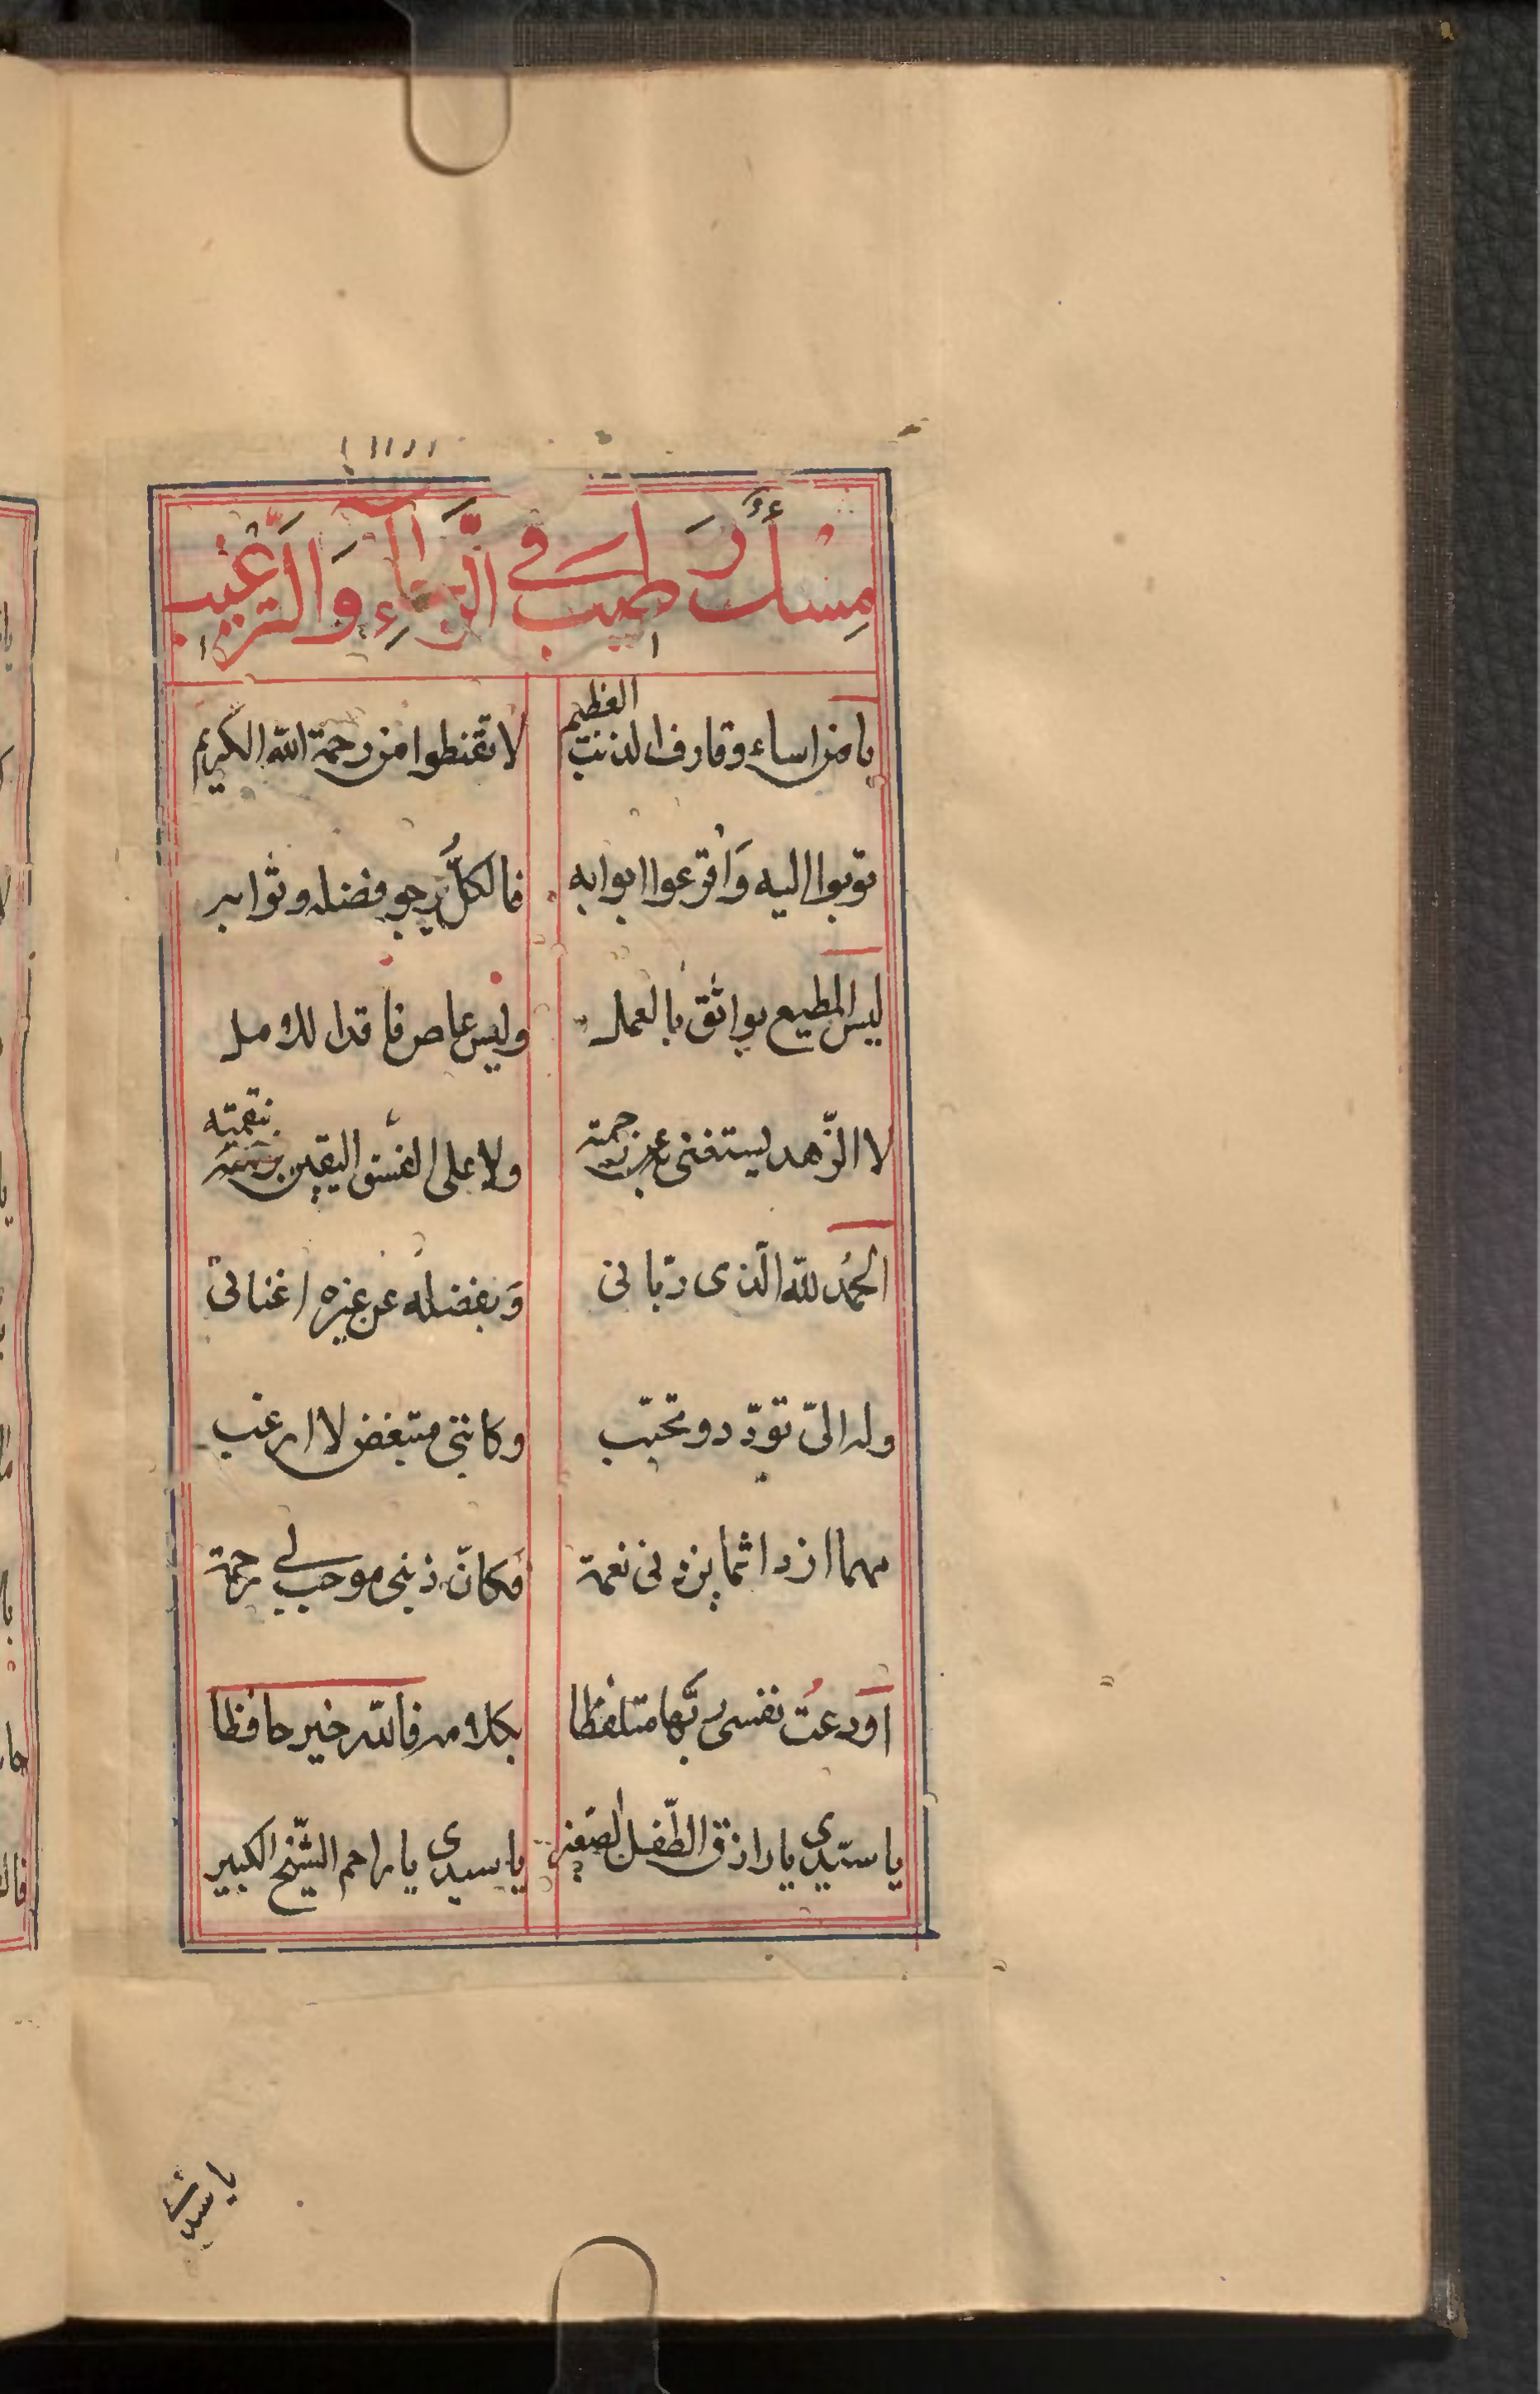 مِسْكٌ وَأَطيب في الرَّجَاءِ وَالتَّرغيب
يا من اساء وقارف الذنب العظيم لا تقنطوا من رحمة الله الكريم
توبوا اليه وَاقرعوا ابوابه فالكلُّ يرجو فضله وثوابه
ليس المطيع بواثق بالعمل وليس عاص فاقدا للامل
لا الزّهد يستغنى عن رحمته ولا على الفسق اليقين بنقمته
الحمُد للّه الّذى ربّانى وَبفضله عن غيره اغنانى
وله الىّ تودّد وتحبّب وكاننى متبغض لا ارغب
مهما ازد اثما يزدنى نعمة فكانّ ذنبى موجب لى رحمة
اودعتُ نفسى ربَّها متلفظا بكلامه فالله خير حافظا
يا سيّدى يا رازق الطّفل الصّغير يا سيدى يا راحم الشّيخ الكبير
يا سيدى